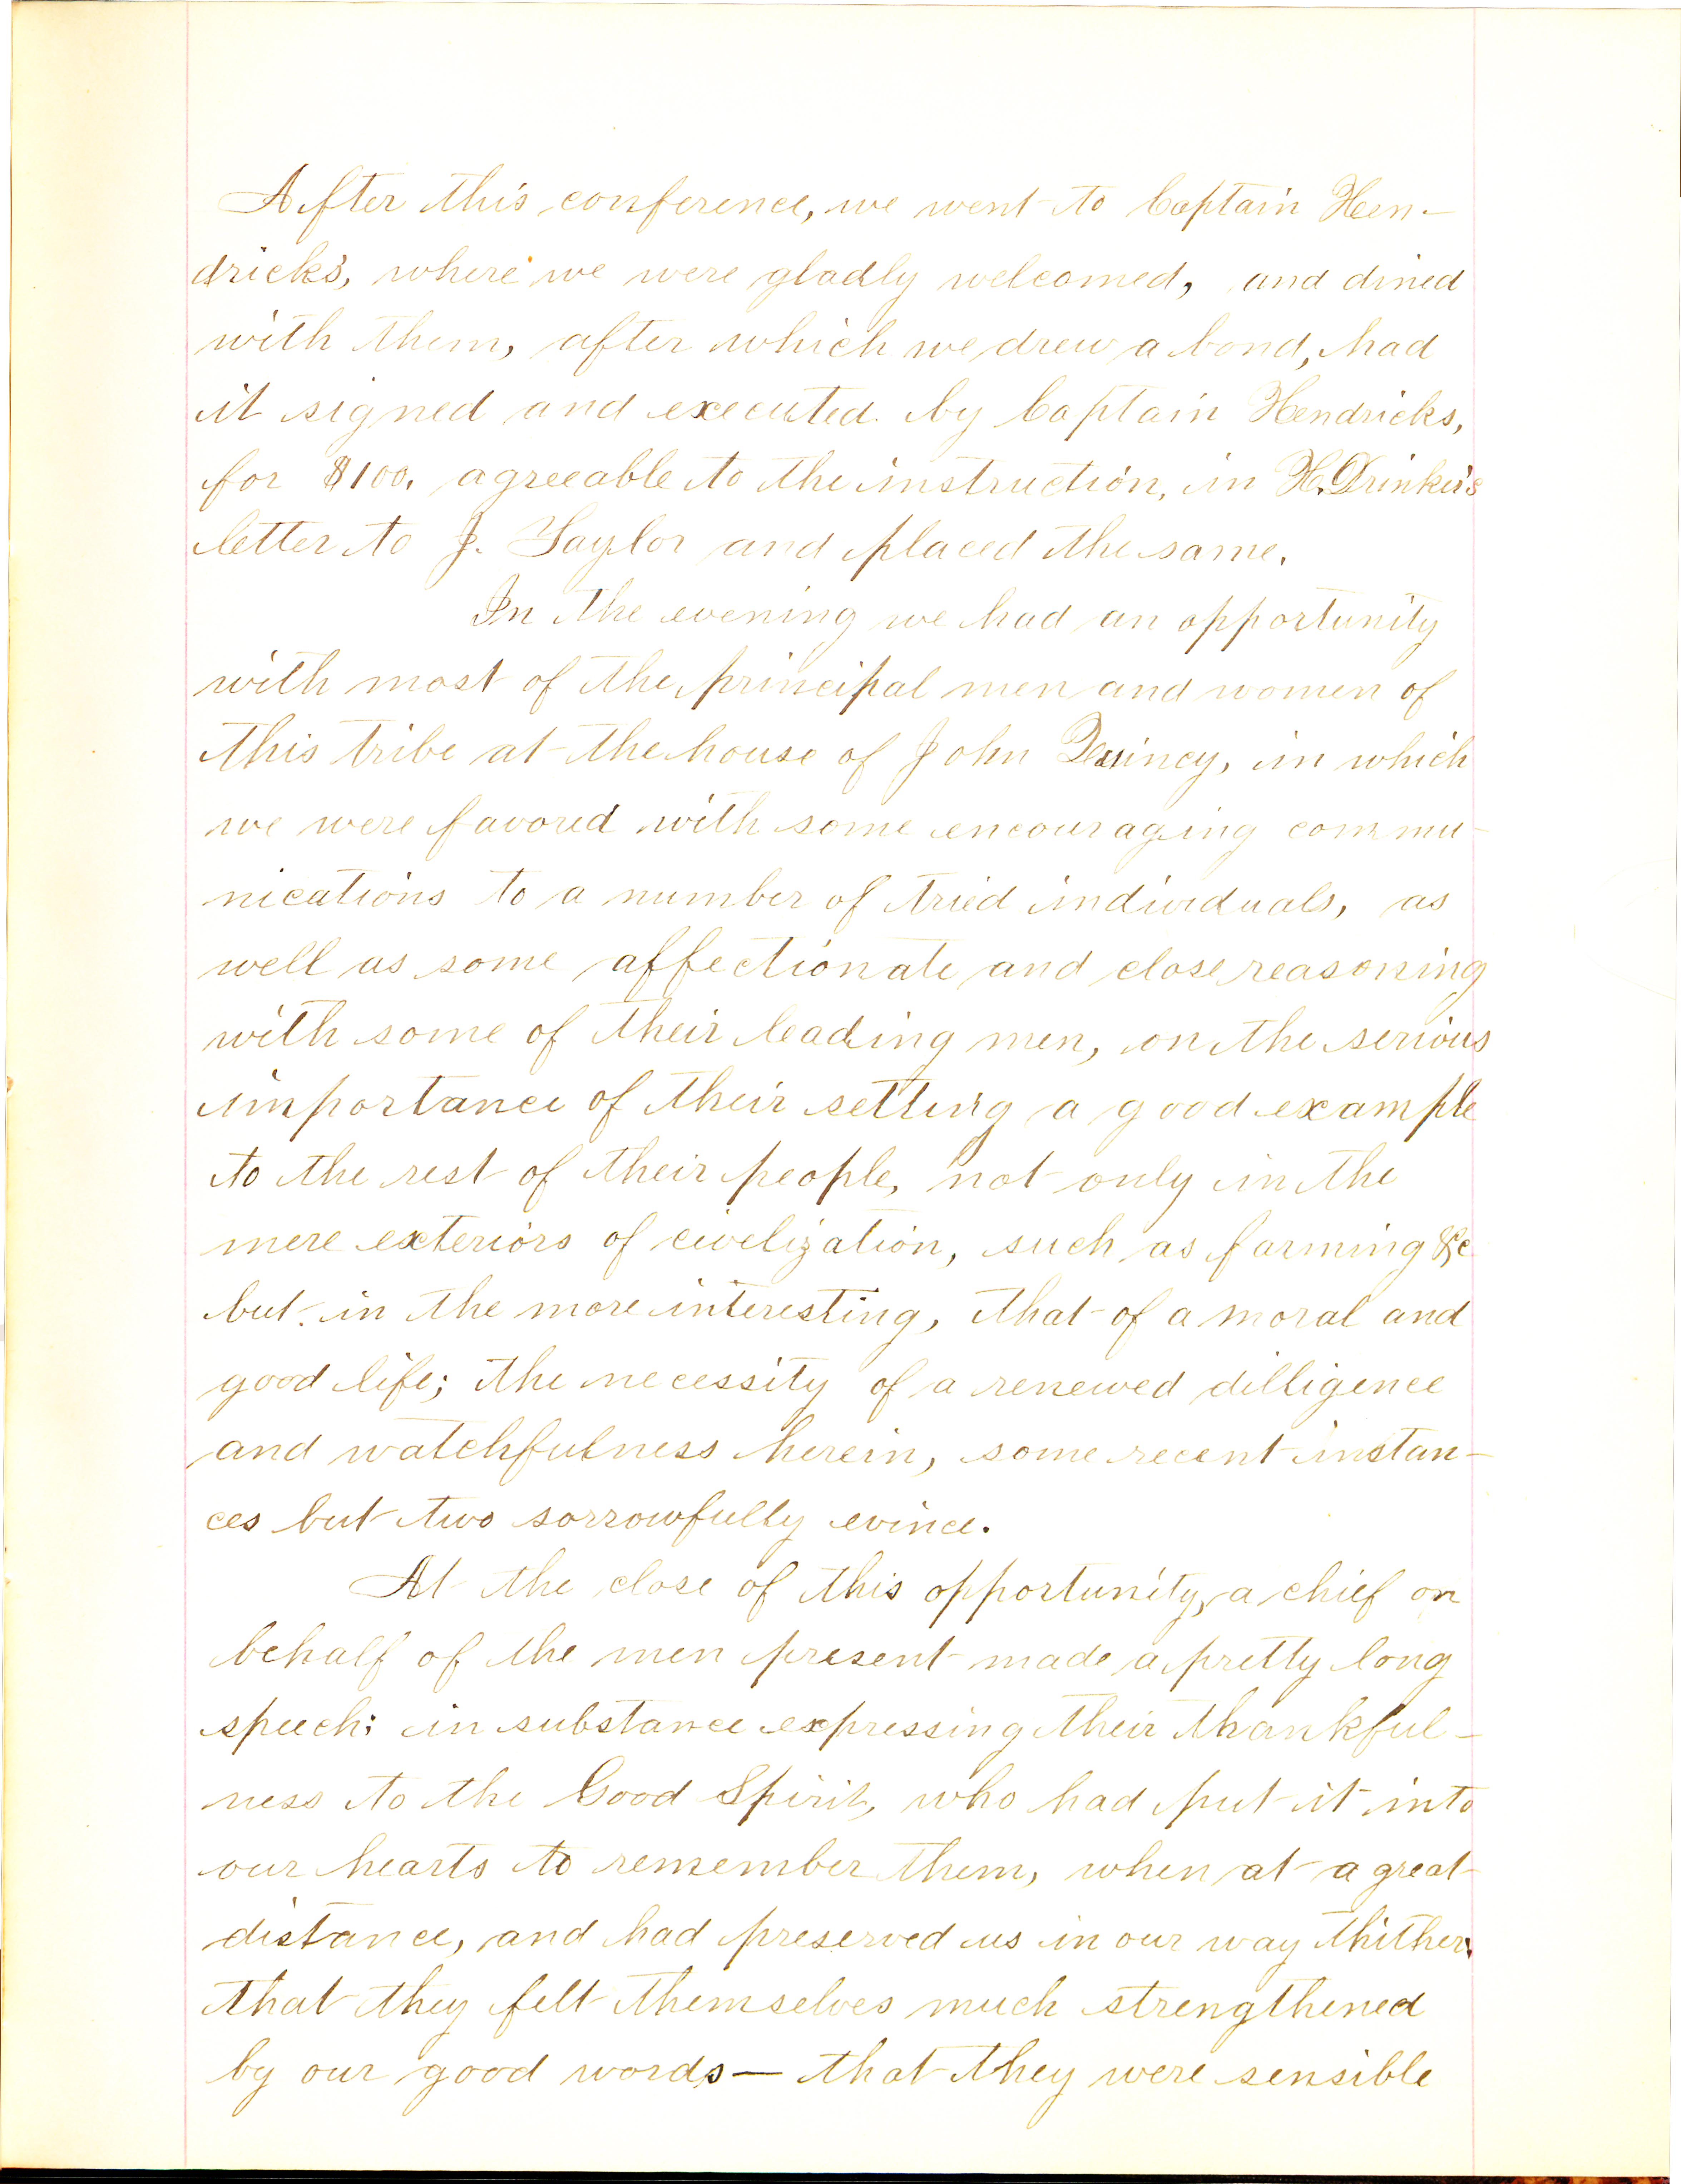 After this conference, we went to Captain Hen-
dricks, where we were gladly welcomed, and dined
with them, after which we drew a bond, had
it signed and executed by Captain Hendricks,
for $100. agreeable to the instruction, in H. Drinker's
letter to J. Taylor and placed the same.
In the evening we had an opportunity
with most of the principal men and women of
this tribe at the house of John Quincy, in which
we were favored with some encouraging commu-
nications to a number of tried individuals, as
well as some affectionate and close reasoning
with some of their leading men, on the serious
importance of their setting a good example
to the rest of their people, not only in the
mere exteriors of civelization, such as farming &c
but in the more interesting, that of a moral and
good life; the necessity of a renewed dilligence
and watchfulness herein, some recent instan-
ces but two sorrowfully evince.
At the close of this opportunity, a chief on
behalf of the men present made a pretty long
speech; in substance expressing their thankful-
ness to the Good Spirit, who had put it into
our hearts to remember them, when at a great
distance, and had preserved us in our way thither.
that they felt themselves much strengthened
by our good words — that they were sensible